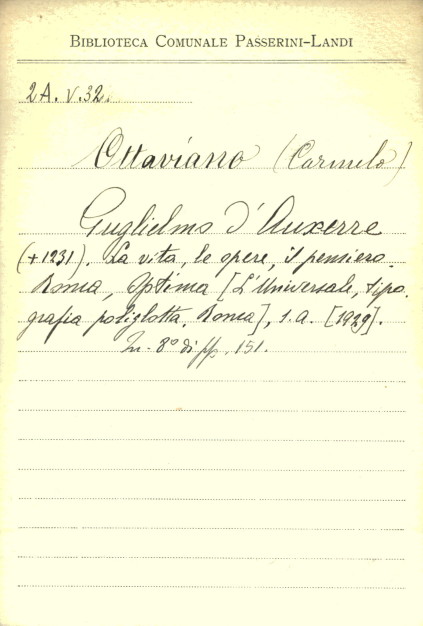 BIBLIOTECA COMUNALE PASSERINI-LANDI
2A. V. 32.
Ottaviano (Carmelo)
Guglielmo d'Auxerre
(+1231). La vita, le opere, il pensiero.
Roma, Optima [L'Universale, tipo-
grafia poliglotta, Roma], s.a. [1929].
In-8° di pp. 151.